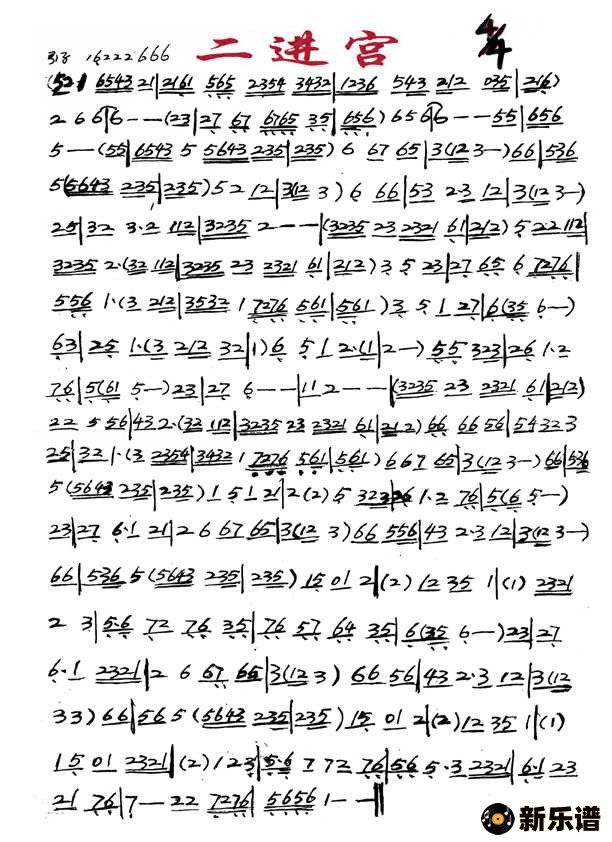 16222666 二进宫 4/4
(521 6543 21|2161 565 2354 3432|1236 543 212 035|216)
2 6 6 6--(23|27 67 6765 35|656)6566--55|656
5--(55|6543 5 5643 235|235) 6 67 65|3(12 3-)66|536
5(5643 235|235)52 12|3(12 3) 6 66|53 2·3 12|3(12 3-)
25|32 3·2 112|3235 2--(3235 23 2321 61|212) 5 22 112|
3235 2·(32 112|3235 23 2321 61|212)3 5 23|27 65 6 7276|
556 1·(3 212|3532 1 7276 561|561)3 5 1 27|6(35 6-)
63|25 1·(3 212 32|1)6 5 1 2·(1|2-)55 323|26 1·2
76|5(61 5-)23|27 6--|11 2--|(3235 23 2321 61|212)
22 5 56|43 2·(32 112|3235 23 2321 61|212)66 66 56|54 32 3
25|32 1·(3 2354|3432 1 7276 561|561)667 65|3(12 3-)66|536
5(5643 235|235)1 51 21|2(2)5 323|26 1·2 76|5(6 5-)
23|27 6·1 21|2 6 67 65|3(12 3)66 556|43 2·3 12|3(12 3-)
66|536 5(5643 235|235)15 01 2|(2)12 35 1|(1)2321
2 3|5·6 72 76 35|76 57 64 35|6(35 6-)23|27
6·1 2321|2 6 67 65|3(12 3) 66 56|43 2·3 12|3(12
33)66|56 5(5643 235|235)15 01 2|(2)12 35 1|(1)
15 01 2321|(2)123|5·6 7 72 76|56 5·3 2321|61 23
21 76|7-22 7276|5656 1--||
新乐谱